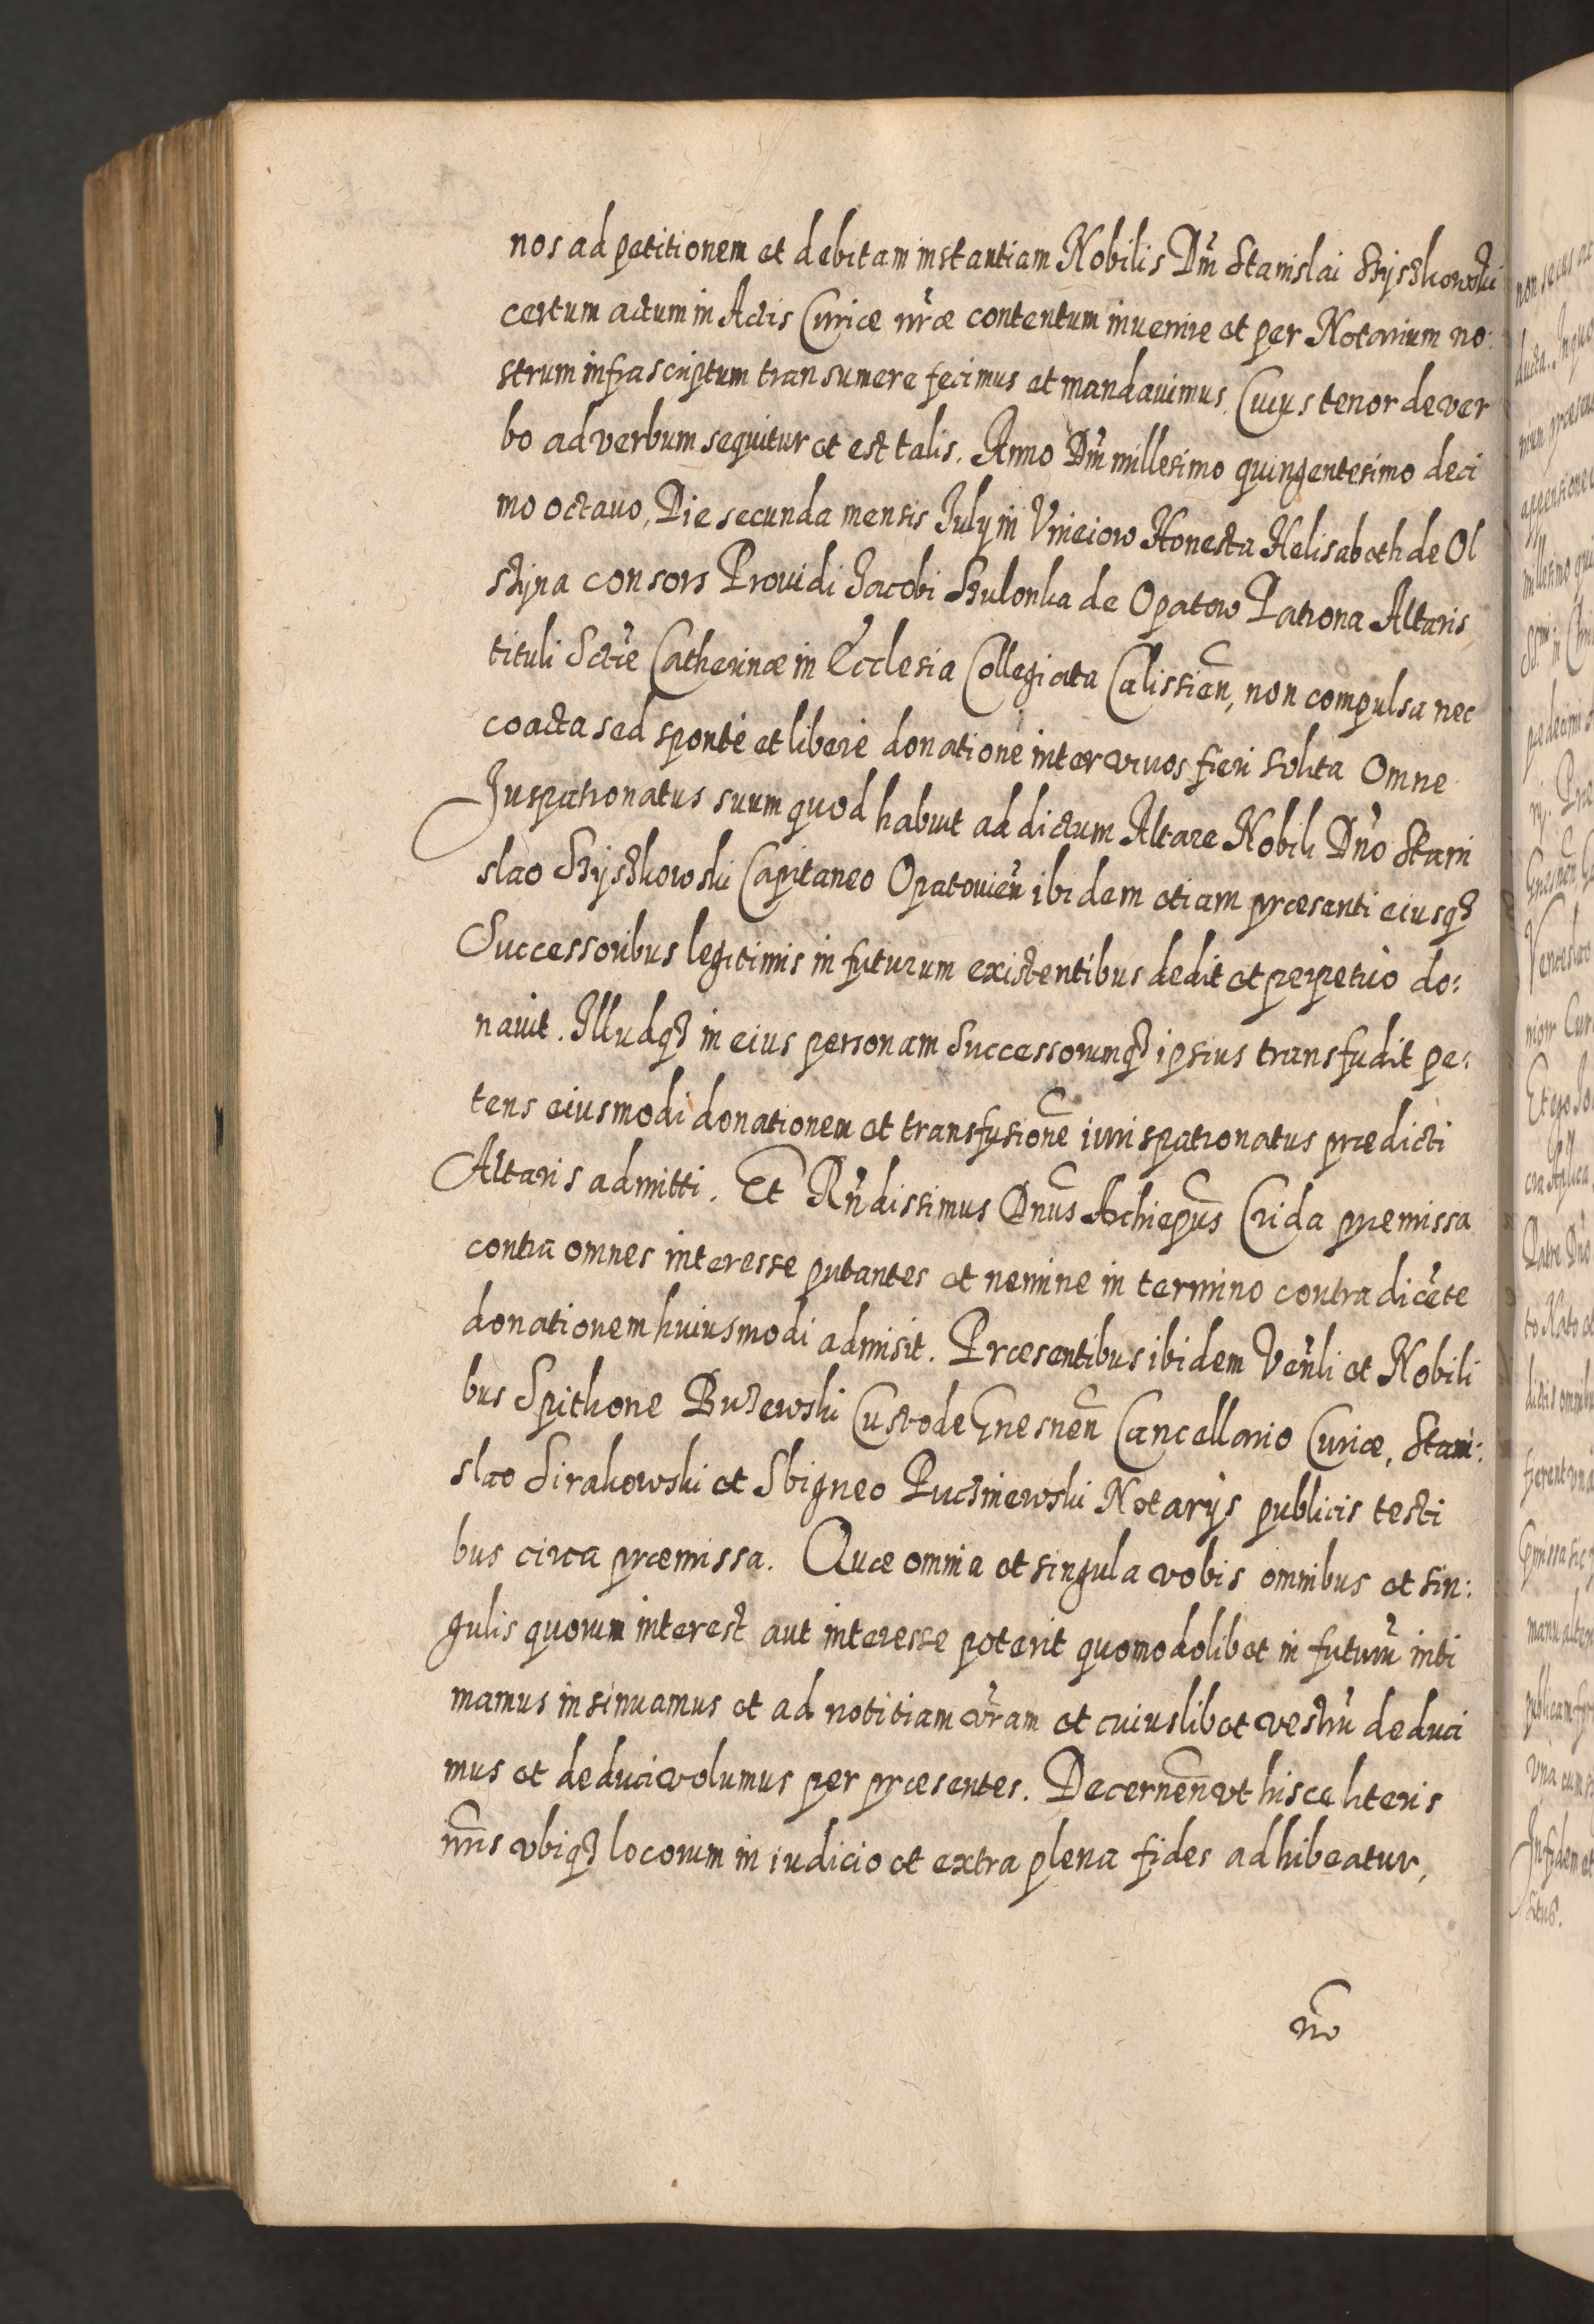 nos ad petitionem et debitam instantiam Nobilis Dni Stanislai Szyszkowski
certum actum in Actis Curiæ nræ contentum inuenire et per Notarium no:
strum infrascriptum transumere fecimus et mandauimus. Cuius tenor de ver
bo ad verbum sequitur et est talis. Anno Dni millesimo quingentesimo deci
mo octauo, Die secunda mensis July in Vnieiow Honesta Helisabeth de Ol
sztyna consors Prouidi Jacobi Szulonka de Opatow Patrona Altaris
tituli Sctæ Catherinæ in Ecclesia Collegiata Calissien, non compulsa nec
coacta sed sponte et libere donatione inter viuos fieri solita Omne
Juspatronatus suum quod habuit ad dictum Altare Nobili Dno Stani
slao Szyszkowski Capitaneo Opatouien ibidem etiam præsenti eiusqz
Successoribus legitimis in futurum existentibus dedit et perpetuò do:
nauit. Illudqz in eius personam Successorumqz ipsius transfudit pe:
tens eiusmodi donationem et transfusionē iurispatronatus prædicti
Altaris admitti. Et Rndissimus Dnus Archiepus Crida præmissa
contra omnes interesse putantes et nemine in termino contradicēte
donationem huiusmodi admisit. Præsentibus ibidem Venli et Nobili
bus Spithone Buzewski Custode Gnesnen Cancellario Curiæ, Stani:
slao Sirakowski et Sbigneo Pucziniewski Notarijs publicis testi
bus circa præmissa. Quæ omnia et singula vobis omnibus et sin:
gulis quorum interest aut interesse poterit quomodolibet in futurū inti
mamus insinuamus et ad notitiam vram et cuiuslibet vestrū deduci
mus et deduci volumus per præsentes. Decernen vt hisce literis
nris vbiqz locorum in iudicio et extra plena fides adhibeatur,
nō